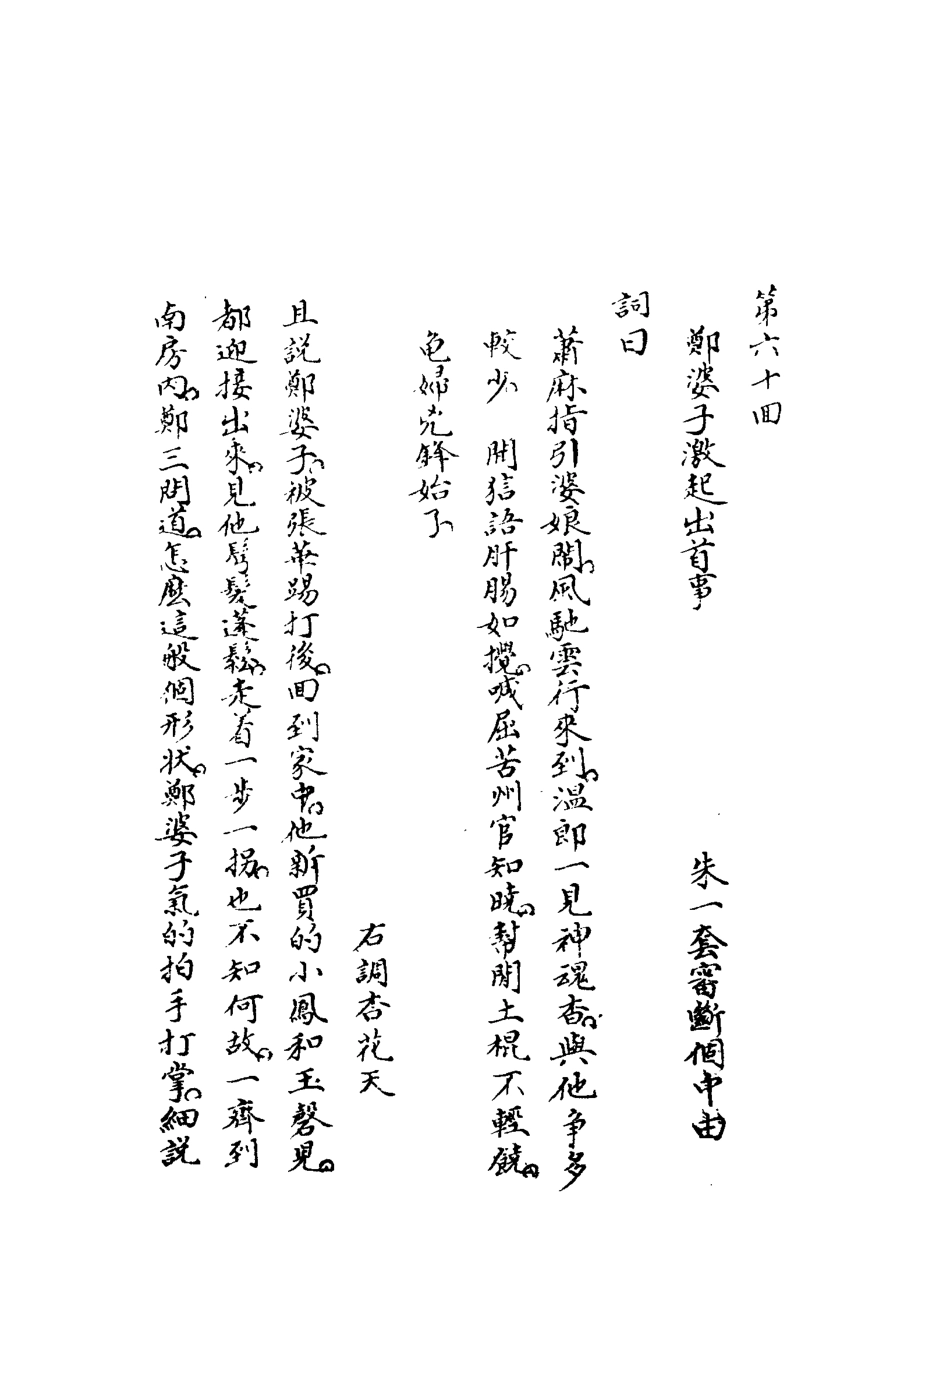 第六十回
鄭婆子激起出首事　朱一套審斷個中由
詞曰
蕭麻指引婆娘鬧風馳雲行來到溫郎一見神魂杳與他爭多
較少　開狺語肝腸如攪喊屈苦州官知曉幫閒土棍不輕饒
龟婦兇鋒始了
右調杏花天
且説鄭婆子被張華踢打後回到家中他新買的小鳳和玉磬兒
都迎接出來見他鬢髮蓬鬆走着一步一拐也不知何故一齊到
南房內鄭三問道怎麽這般個形状鄭婆子氣的拍手打掌細説